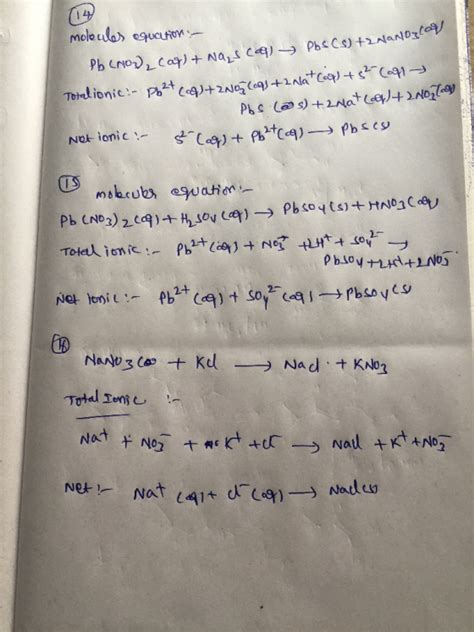 14
molecular equation:-
Pb(NO3)2(aq) + Na2S(aq) → PbS(s) + 2NaNO3(aq)
Total ionic:- Pb2+(aq) + 2NO3-(aq) + 2Na+(aq) + S2-(aq) →
PbS(s) + 2Na+(aq) + 2NO3-(aq)
Net ionic:- S2-(aq) + Pb2+(aq) → PbS(s)
15
molecular equation:-
Pb(NO3)2(aq) + H2SO4(aq) → PbSO4(s) + HNO3(aq)
Total ionic:- Pb2+(aq) + NO3- + 2H+ + SO42- →
PbSO4 + 2H+ + 2NO3-
Net Ionic:- Pb2+(aq) + SO42-(aq) → PbSO4(s)
NaNO3 + KCl → NaCl + KNO3
Total Ionic :-
Na+ + NO3- + K+ + Cl- → NaCl + K+ + NO3-
Net:- Na+(aq) + Cl-(aq) → NaCl(s)